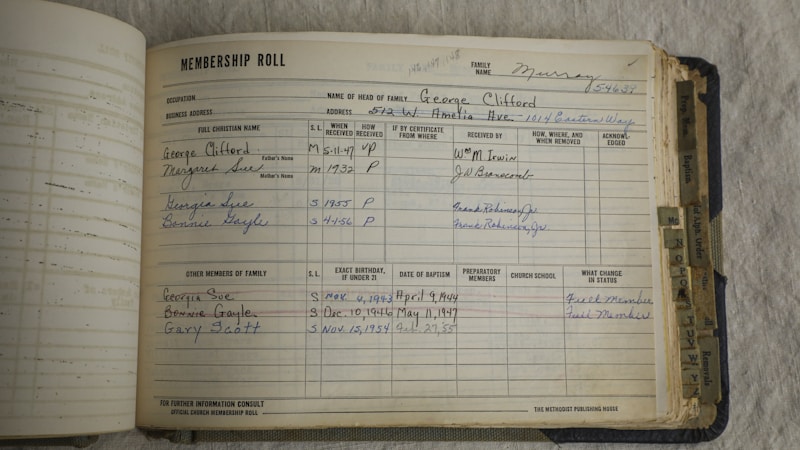 MEMBERSHIP ROLL
148, 149, 148
FAMILY NAME Murray
54639
OCCUPATION NAME OF HEAD OF FAMILY George Clifford
BUSINESS ADDRESS ADDRESS 512 W. Amelia Ave. - 1014 Eastern Way
FULL CHRISTIAN NAME S. L. WHEN RECEIVED HOW RECEIVED IF BY CERTIFICATE FROM WHERE RECEIVED BY HOW, WHERE, AND WHEN REMOVED ACKNOWLEDGED
George Clifford M 5-11-47 VP Wm M Irwin
Father's Name
Margaret Sue M 1932 P J W Branscomb
Mother's Name
Georgia Sue S 1955 P Frank Robinson, Jr.
Bonnie Gayle S 4-1-56 P Frank Robinson, Jr.
OTHER MEMBERS OF FAMILY S. L. EXACT BIRTHDAY, IF UNDER 21 DATE OF BAPTISM PREPARATORY MEMBERS CHURCH SCHOOL WHAT CHANGE IN STATUS
Georgia Sue S Nov. 4, 1943 April 9, 1944 Full Member
Bonnie Gayle S Dec. 10, 1946 May 11, 1947 Full Member
Gary Scott S Nov. 15, 1954 27, 55
FOR FURTHER INFORMATION CONSULT
OFFICIAL CHURCH MEMBERSHIP ROLL THE METHODIST PUBLISHING HOUSE
Baptism
Removals